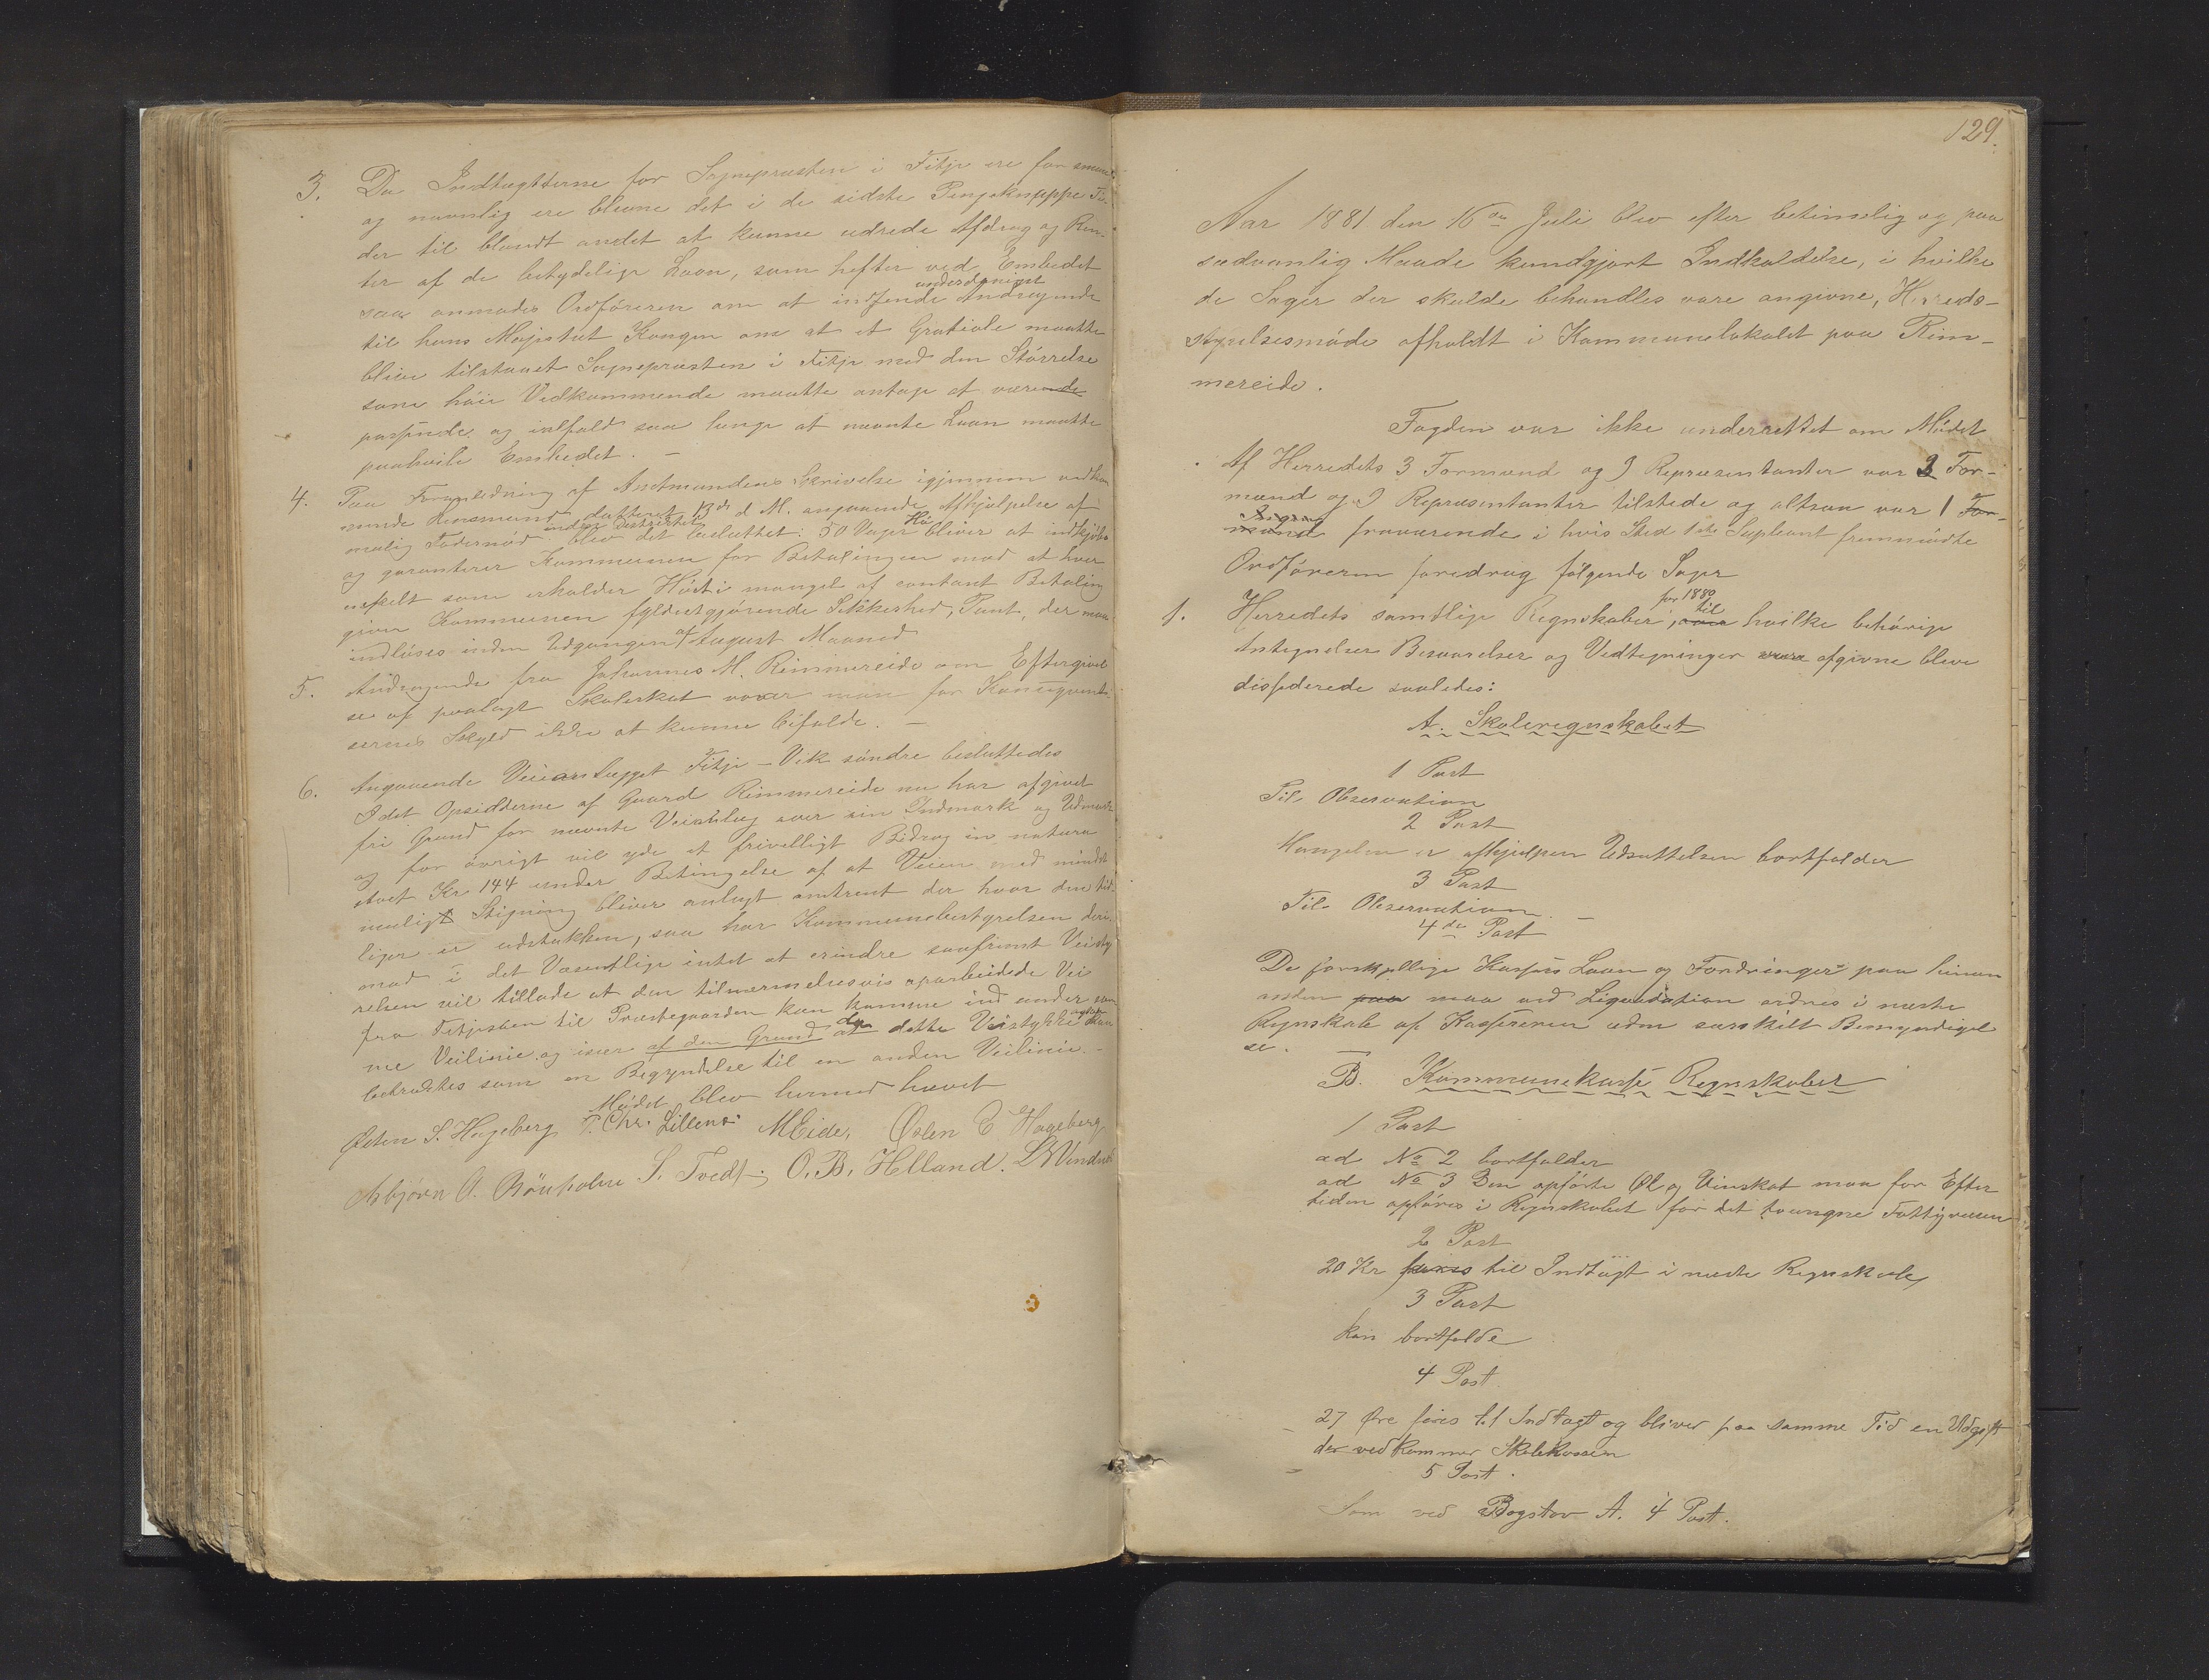 3. Da Indtægterne for Sognepræsten i Fitje ere for smaae
og navnlig ere blevne det i de sidste Pengeknappe Ti-
der til blandt andet at kunne udrede Afdrag og Ren-
ter af de betydelige Laan, som hefter ved Embedet
saa anmodes Ordföreren om at indsende underdanigst Andragende
til hans Majestæt Kongen om at et Gratiale maatte
blive tilstaaet Sognepræsten i Fitje med den Störrelse
som höie Vedkommende maatte antage at værende
passende og ialfald saa lenge at nævnte Laan maatte
paahvile Embedet. —
4. Paa Foranledning af Amtmandens Skrivelse igjennem vedkom
mende Lensmand datteret 13de d. M. angaaende Afhjælpelse af
mulig Födernöd inden Destriktet blev det besluttet: 50 Vager Hö bliver at indkjöbe
og garanterer Kommunen for Betalingen mod at hver
enkelt som erholder Höet i mangel af contant Betaling
giver Kommunen fyldestgjörende Sikkerhed, Pant, der maa
indlöses inden Udgangen af August Maaned
5. Andragende fra Johannes M. Rimmereide om Eftergivel
se af paalagt Skoleskat man for Konseqvent-
sernes Skyld ikke at kunne bifalde. —
6. Angaaende Veianlægget Fitje – Vik söndre besluttedes
Idet Opsidderne af Gaard Rimmereide nu har afgivet
fri Grund for nævnte Veianlæg over sin Indmark og Udmark
og for övrigt vil yde et frivelligt Bidrag in natura
stort Kr 144 under Betingelse af at Veien med mindst
muligt Stigning bliver anlagt omtrent der hvor den tid-
ligere er udstukken, saa har Kommunebestyrelsen deri-
mod i det Væsentlige intet at erindre saafremt Veisty
relsen vil tillade at den tilnærmelsesvis oparbeidede Vei
fra Fitjesöen til Præstegaarden kan komme ind under sam
me Veilinie og især af den Grund at dette Veistykke kan
betragtes som en Begyndelse til en anden Veilinie. —
Mödet blev hermed hævet
Östen S. Hageberg P. Chr. Lillenes MEide, Östen E Hageberg
Asbjörn O. Rönholm S. Tvedt. O. B. Helland.
129.
Aar 1881 den 16de Juli blev efter betimelig og paa
sædvanlig Maade kundgjort Indkaldelse, i hvilke
de Sager der skulde behandles vare angivne, Herreds-
styrelsesmöde afholdt i Kommunelokalet paa Rim-
mereide.
Fogden var ikke underrettet om Mödet
Af Herredets 3 Formænd og 9 Repræsentanter var 3 For-
mænd og 9 Repræsentanter tilstede og altsaa var 1 For-
mand fraværende i hvis Sted 1ste Supleant fremmödte
Ordföreren foredrog fölgende Sager
1. Herredets samtlige Regnskaber for 1880, til hvilke behörige
Antegnelser Besvarelser og Vedtegninger vare afgivne bleve
dissederede saaledes:
A. Skoleregnskabet
1 Post
Til Observation
2 Post
Mangelen er afhjulpen Udsættelsen bortfalder
3 Post
Til Observation. —
4de Post
De forskjellige Kassers Laan og Fordringer paa hinan
anden paa maa ved Liqvidation ordnes i næste
Regnskab af Kassereren uden særskilt Bemyndigel
se.
B. Kommunekasse Regnskabet
1 Post
ad No 2 bortfalder
ad No 3 Den opförte Öl og Vinskat maa for Efter
tiden opföres i Regnskabet for det tvungne Fattigvæsen
2 Post
20 Kr föres til Indtægt i næste Regnskab
3 Post
kan bortfalde
4 Post.
27 Øre föres til Indtægt og bliver paa samme Tid en Udgift
der vedkommer Skolekassen
5 Post.
Som ved Bogstav A. 4 Post.